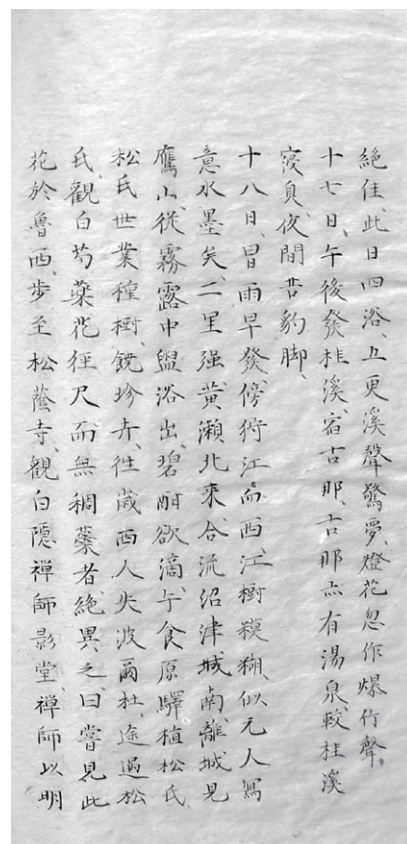 絶佳、此日四浴、五更溪聲驚夢、燈花忽作爆竹聲、
十七日、午後發桂溪、宿古那、古那亦有湯泉、較桂溪
寝負、夜間苦豹脚、
十八日、冒雨早發、傍狩江而西、江樹糢糊、似元人寫
意水墨矣、二里強、黃瀬北來合流、沼津城南、離城見
鷹山、從霧露中盥浴出、碧酣欲滴、午食原驛植松氏、
松氏世業種樹、銃珍卉、往歳西人失波爾杜、途過松
氏、觀白芍藥花徑尺而無稠蘂者、絶異之、曰嘗見此
花於魯西、步至松蔭寺、觀白隱禪師影堂、禪師以明